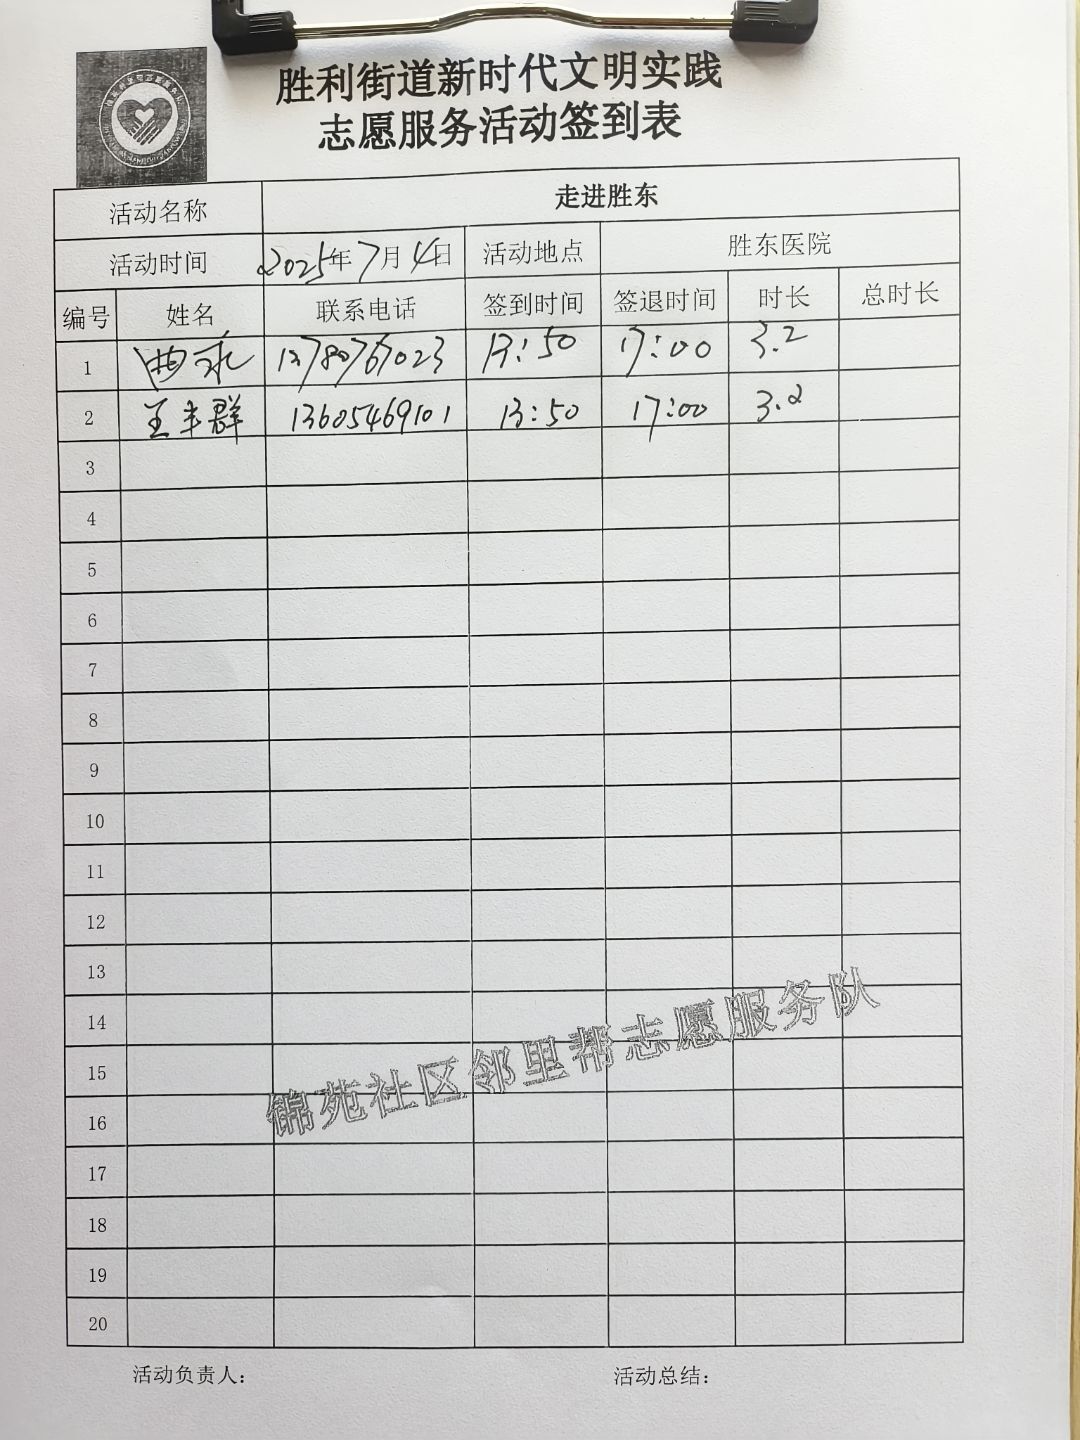 胜利街道新时代文明实践
志愿服务活动签到表
活动名称 走进胜东
活动时间 2025年7月4日 活动地点 胜东医院
编号 姓名 联系电话 签到时间 签退时间 时长 总时长
1 曲永 13780767023 13:50 17:00 3.2
2 王丰群 13605469101 13:50 17:00 3.2
3
4
5
6
7
8
9
10
11
12
13
14
15
16
17
18
19
20
锦苑社区邻里帮志愿服务队
活动负责人: 活动总结: